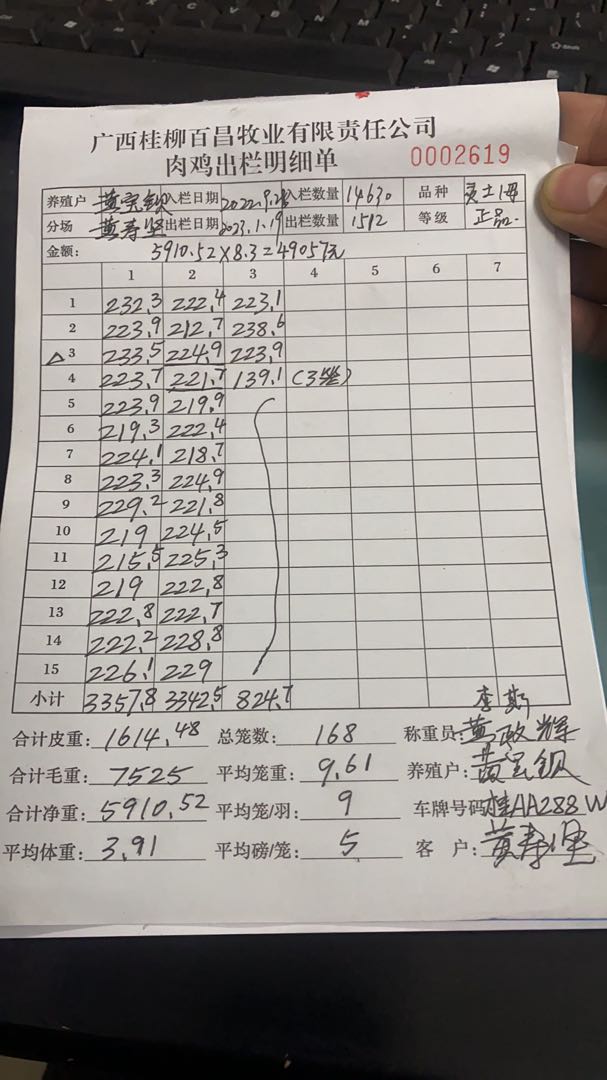 广西桂柳百昌牧业有限责任公司
肉鸡出栏明细单 0002619
养殖户 入栏日期 2022.9.28 入栏数量 14630 品种
分场 黄寿坚 出栏日期 2023.1.19 出栏数量 1512 等级 正品.
金额: 5910.52×8.3=49057元
1 2 3 4 5 6 7
1 232.3 222.4 223.1
2 223.9 212.7 238.6
△3 233.5 224.9 223.9
4 223.7 221.7 139.1 (3坐)
5 223.9 219.9
6 219.3 222.4
7 224.1 218.7
8 223.3 224.9
9 229.2 221.8
10 219 224.5
11 215.5 225.3
12 219 222.8
13 222.8 222.7
14 222.2 228.8
15 226.1 229
小计 3357.8 3342.5 824.7
李斯
合计皮重: 1614.48 总笼数: 168 称重员: 黄政辉
合计毛重: 7525 平均笼重: 9.61 养殖户:
合计净重: 5910.52 平均笼/羽: 9 车牌号码 桂AA288W
平均体重: 3.91 平均磅/笼: 5 客 户: 黄寿坚